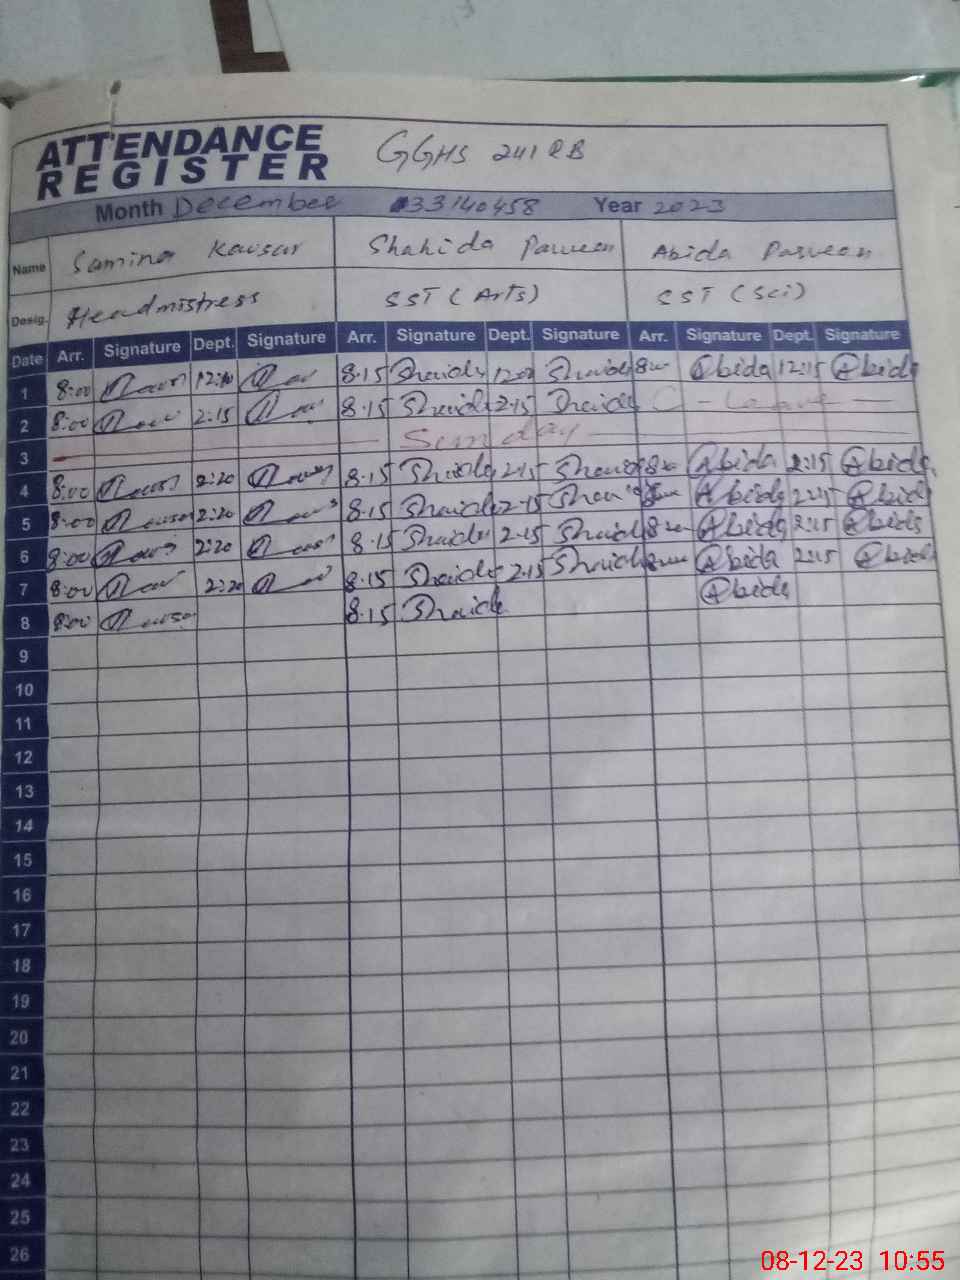 ATTENDANCE REGISTER GGHS 241 RB
Month December 33140458 Year 2023
Name Samina Kausar Shahida Parveen Abida Parveen
Desig. Headmistress SST (Arts) SST (Sci)
Date Arr. Signature Dept. Signature Arr. Signature Dept. Signature Arr. Signature Dept. Signature
1 8:00 8.15 Shaida Shaida Abida 12:15 Abida
2 8:00 2:15 8.15 Shaida 2.15 Shaida C - Leave
3 Sunday
4 8:00 2:20 8.15 Shaida 2.15 Abida 2:15 Abida
5 8:00 2:20 8.15 Shaida 2.15 Abida 2:15 Abida
6 8:00 2:20 8.15 Shaida 2.15 Shaida Abida 2:15 Abida
7 8:00 2:20 8.15 Shaida 2.15 Shaida Abida 2:15 Abida
8 8:00 8.15 Shaida Abida
9
10
11
12
13
14
15
16
17
18
19
20
21
22
23
24
25
26
08-12-23 10:55